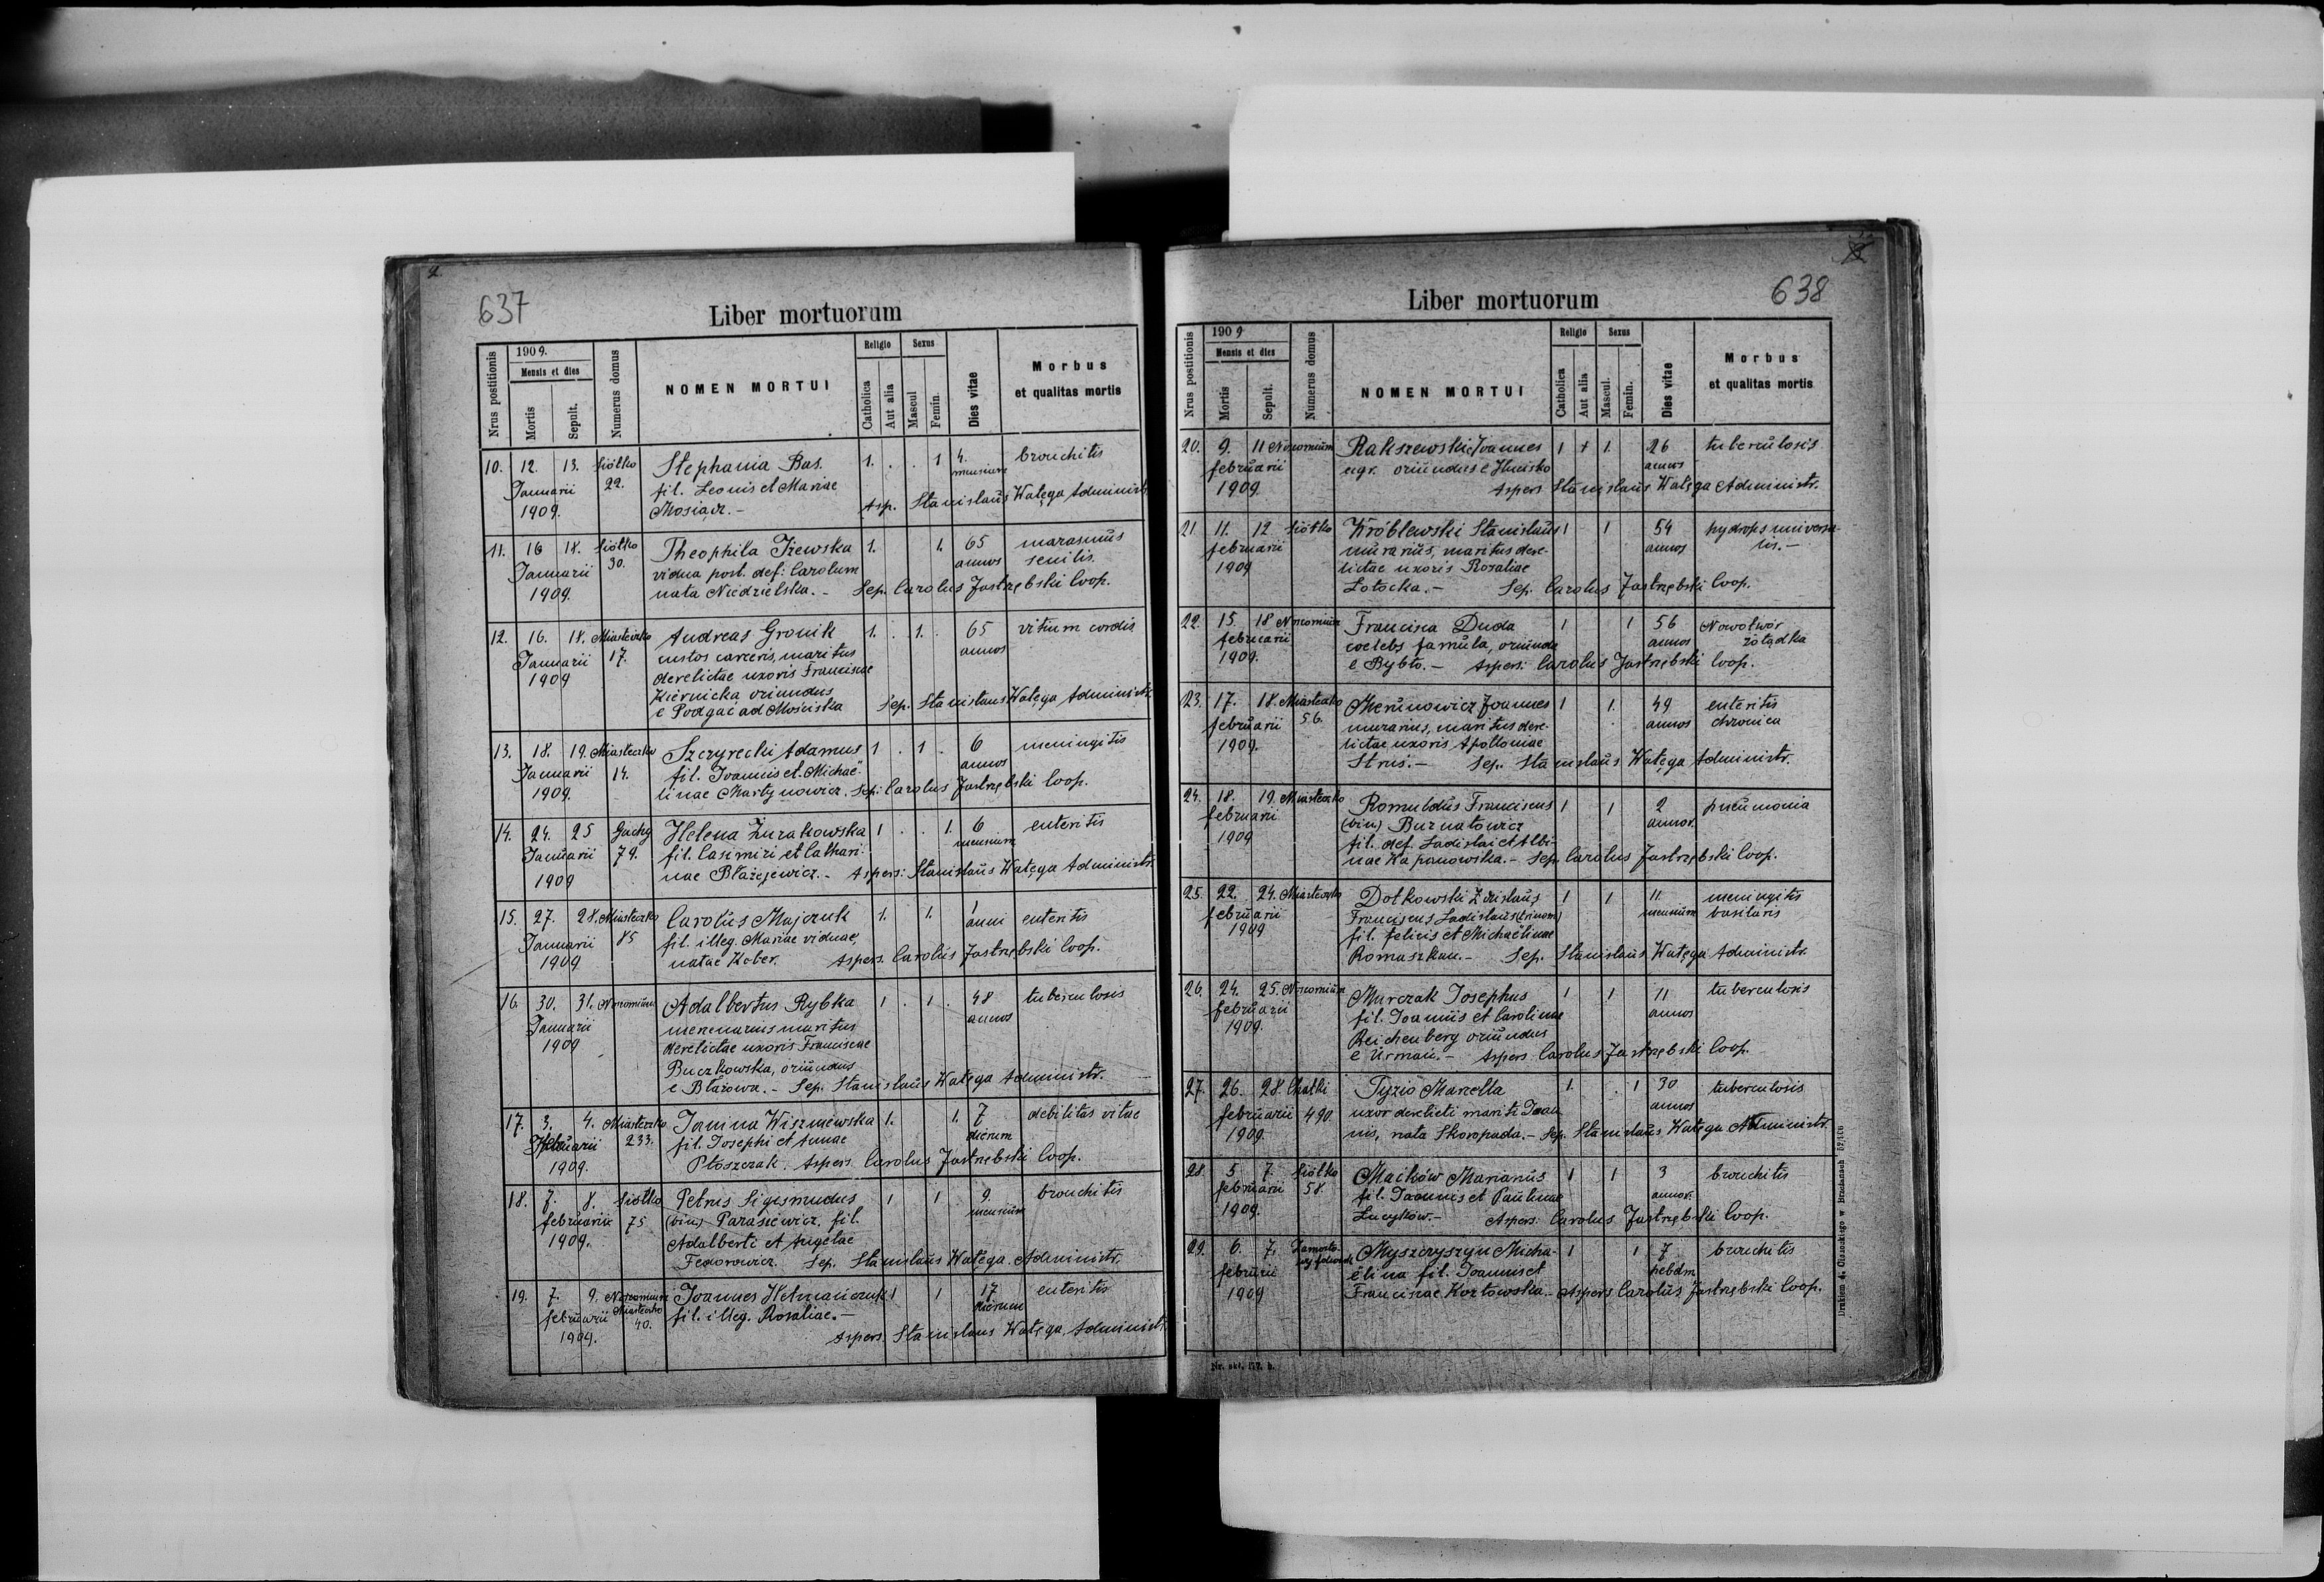 2.
637
Liber mortuorum
Nrus postitionis
1909.
Mensis et dies
Mortis
Sepult.
Numerus domus
NOMEN MORTUI
Religio
Catholica
Aut alia
Sexus
Mascul
Femin.
Dies vitae
Morbus
et qualitas mortis
10. 12. 13. Siółko Stephania Bas. 1. . . 1 4. bronchitis
Januarii 22. fil. Leonis et Mariae mensium
1909. Mosiądz. - Asp. Stanislaus Watęga Administr.
11. 16 18. Siółko Theophila Iżewska 1. 1. 65 marasmus
Januarii 30. vidua post. def: Carolum annos senilis.
1909. nata Niedzielska. - Sep. Carolus Jastrzębski Coop.
12. 16. 18. Miasteczko Andreas Gronik 1. 1. 65 vitium cordis
Januarii 17. custos carceris, maritus annos
1909 derelictae uxoris Franciscae
Kiernicka oriundus
e Podgać ad Mościska Sep. Stanislaus Watęga Administr.
13. 18. 19. Miasteczko Szczyrecki Adamus 1 . 1 . 6 meningitis
Januarii 14. fil. Joannis et Michaë- annos
1909. linae Martynowicz. Sep: Carolus Jastrzębski Coop.
14. 24. 25 Gachy Helena Żurakowska 1 . . 1. 6 enteritis
Januarii 79. fil. Casimiri et Cathari- mensium
1909 nae Błażejewicz. - Aspers: Stanislaus Watęga Administr.
15. 27. 28. Miasteczko Carolus Majczuk 1. 1. 1 enteritis
Januarii 85 fil. illeg. Mariae viduae, anni
1909 natae Kober. Aspers. Carolus Jastrzębski Coop.
16. 30. 31. Nosocomium Adalbertus Rybka 1 . 1 . 48 tuberculosis
Januarii mercenarius maritus annos
1909 derelictae uxoris Franciscae
Buczkowska, oriundus
e Błażowa. - Sep. Stanislaus Watęga Administr.
17. 3. 4. Miasteczko Janina Wiszniewska 1. 1. 7 debilitas vitae
Februarii 233. fil. Josephi et Annae dierum
1909. Płoszczak. Aspers. Carolus Jastrzębski Coop.
18. 7. 8. Siółko Petrus Sigismudus 1 1 9. bronchitis
februarii 75 (bin.) Parasiewicz. fil. mensium
1909. Adalberti et Angelae
Fedorowicz. Sep. Stanislaus Watęga. Administr.
19. 7. 9. Nosocomium Joannes Hetmańczuk 1 1 17 enteritis
februarii Miasteczko fil. illeg. Rosaliae. - dierum
1909. 40. Aspers. Stanislaus Watęga, Administr.
638
Liber mortuorum
Nrus postitionis
1909
Mensis et dies
Mortis
Sepult.
Numerus domus
NOMEN MORTUI
Religio
Catholica
Aut alia
Sexus
Mascul.
Femin.
Dies vitae
Morbus
et qualitas mortis
20. 9. 11 Nosocomium Rakszewski Joannes 1 + 1. 26 tuberculosis
februarii agr. oriundus e Hnisko annos
1909. Aspers Stanislaus Watęga Administr.
21 11. 12 Siółko Wróblewski Stanislaus 1 1 54 hydrops universa-
februarii murarius, maritus dere- annos lis. -
1909 lictae uxoris Rosaliae
Łotocka. - Sep. Carolus Jastrzębski Coop.
22. 15. 18 Nosocomium Francisca Duda 1 1 56 Nowotwór
februarii coelebs famula, oriunda annos żołądka
1909. e Bybło. - Aspers: Carolus Jastrzębski Coop.
23. 17. 18. Miasteczko Merunowicz Joannes 1 1. 49 enteritis
februarii 56. murarius, maritus dere- annos chronica
1909. lictae uxoris Apolloniae
Struś. - Sep. Stanislaus Watęga Administr.
24. 18. 19. Miasteczko Romuldus Franciscus 1 1 2 pneumonia
februarii (bin.) Burnatowicz annor.
1909 fil. def. Ladislai et Albi-
nae Kapanowska. - Sep. Carolus Jastrzębski Coop.
25. 22. 24. Miasteczko Dołkowski Zdislaus 1 1 11 meningitis
februarii Franciscus Ladislaus (trinom.) mensium basilaris
1909 fil. felicis et Michaëlinae
Romaszkan. - Sep. Stanislaus Watęga Administr.
26. 24. 25. Nosocomium Murczak Josephus 1 1 11 tuberculosis
februarii fil. Joannis et Carolinae annos
1909. Reichenberg oriundus
e Urmań. - Aspers. Carolus Jastrzębski Coop.
27. 26. 28. Chatki Tyzio Marcella 1. . 1 30 tuberculosis
februarii 490. uxor derelicti mariti Joan- annos
1909. nis, nata Skoropada. - Sep. Stanislaus Watęga Administr.
28. 5 7. Siółko Maćków Marianus 1 1 3 bronchitis
februarii 58. fil. Joannis et Paulinae annor.
1909. Łucyków. - Aspers: Carolus Jastrzębski Coop.
29. 6. 7. Myszczyszyn Micha- 1 1 7 bronchitis
februrii ëlina fil. Joannis et hebdm
1909 Franciscae Kozłowska. - Aspers Carolus Jastrzębski Coop.